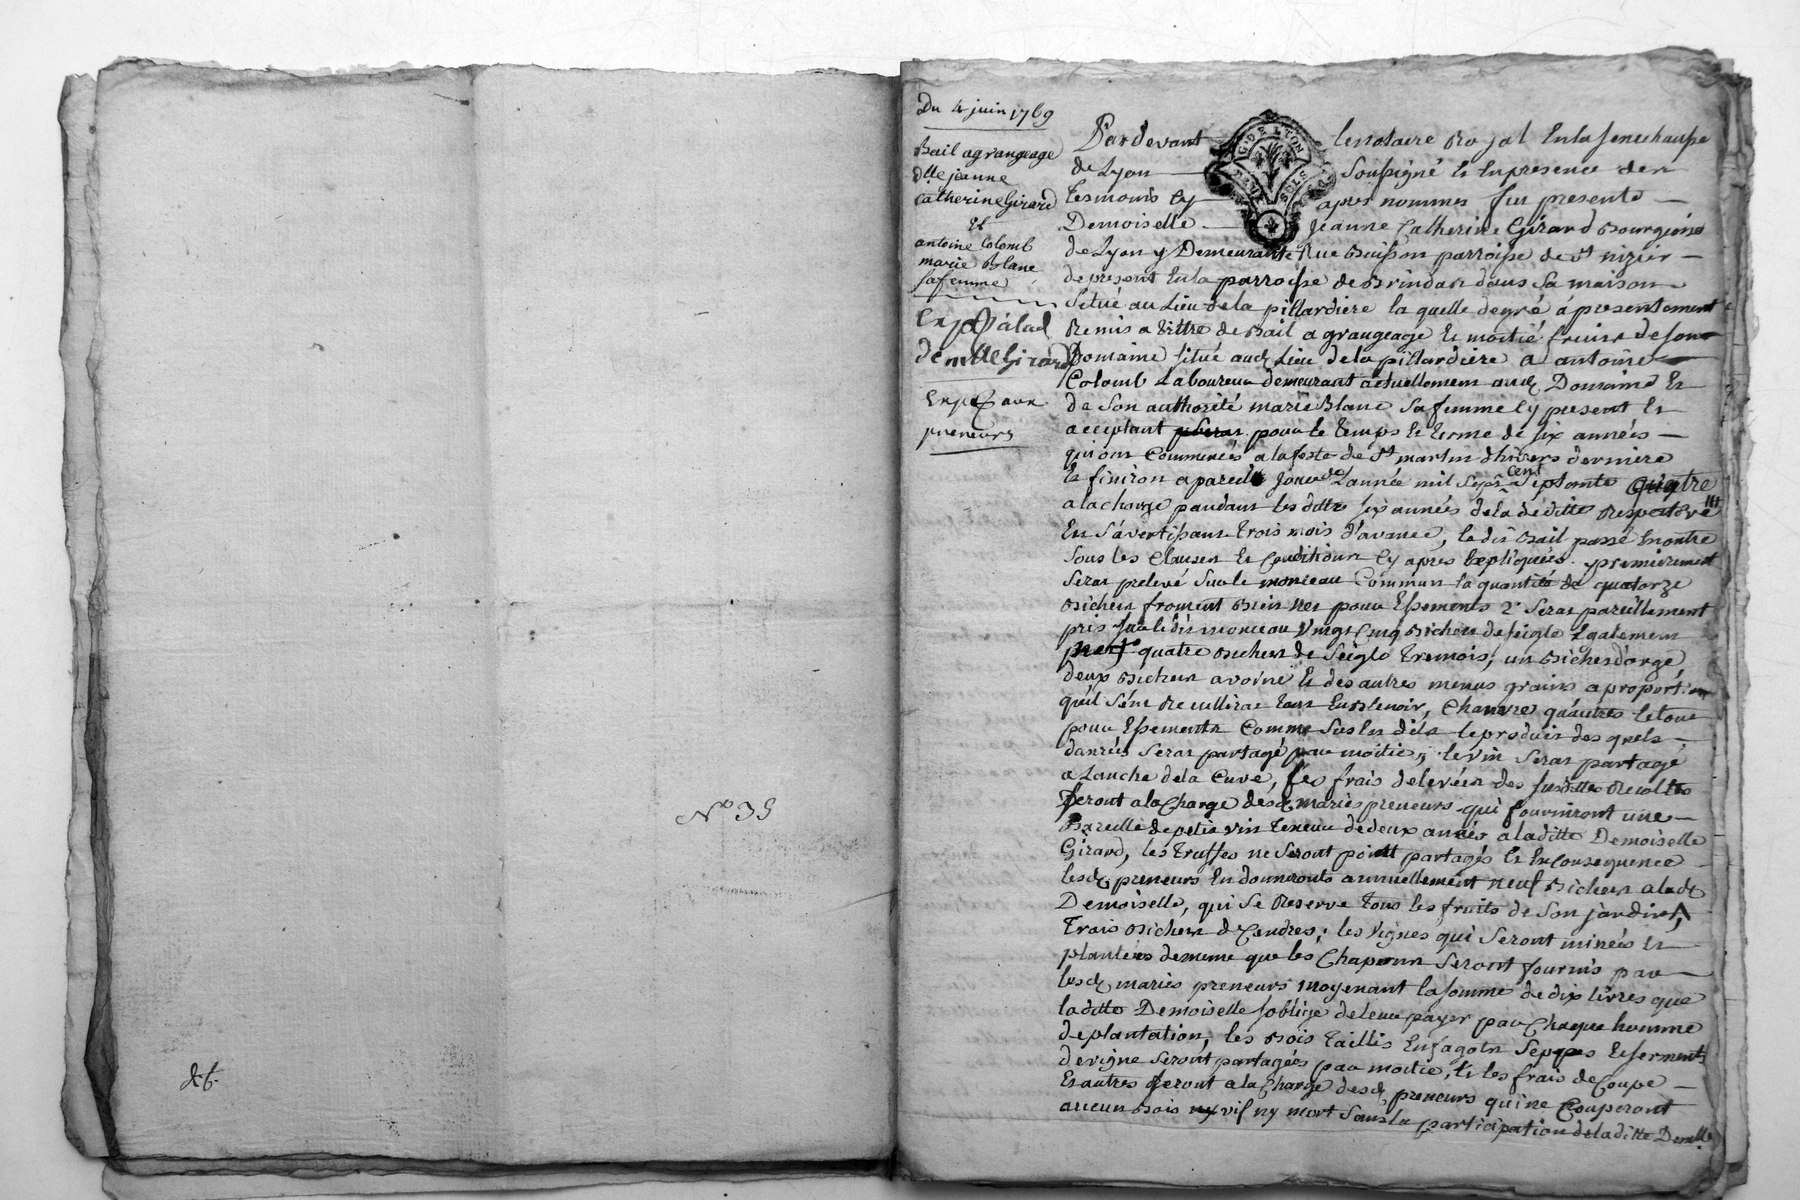 N° 35
&t.
Du 4 juin 1769
Bail a grangeage
dlle jeanne
catherine Girard
Et
antoine Colomb
marie Blanc
sa femme
Exp à lad
demlle Girard
Exp aux
preneurs
G. DE LYON
DEUX SOLS
Pardevant le notaire Royal En la senechaussé
de Lyon soussigné Et En presence des
tesmoins Cy apres nommés fut presente
Demoiselle jeanne Catherine Girard Bourgeoise
de Lyon y Demeurante Rue Buisson parroisse de st nizier
de present En la parroisse de Brindas dans sa maison
situé au Lieu de la pillardiere la quelle degré á presentement
Remis a tittre de Bail a grangeage Et moitié fruits de son
Domaine situé aud Lieu de la pillardiere a antoine
Colomb Laboureur demeurant actuellement aud Domaine Et
de son authorité marie Blanc sa femme Cy present Et
acceptant pour le temps Et terme de six années
qui ont Commencés a la feste de st martin d'hivers derniere
Et finiron a pareil jour de L'année mil sept cent septante quatre
a la charge pendant les dittes six années de la deditte Respective
En s'avertissant trois mois d'avance, le dit Bail passé En outre
sous les Clauses Et Conditions Cy apres Expliquées. premierement
seras prelevé sur le monceau Commun la quantité de quatorze
Bichets froment Bien net pour Esements 2° seras pareillement
pris sur le dit monceau vingt Cinq Bichets de seigle Egalement
net quatre Bichets de seigle tremois; un Bichet d'orge
deux Bichets avoine Et des autres menus grains a proportion
qu'il s'en Recullieras tant En Blenoir, Chanvre qu'autres le tout
pour Esements Comme sus Est dit le produit des quels
danrées seras partagé par moitié; le vin seras partagé
a Lanche de la Cuve, les frais de levées des susdittes Recoltes
seront a la Charge desd mariés preneurs qui fourniront une
Bareille de petit vin teneur de deux annés a laditte Demoiselle
Girard, les truffes ne seront point partagés Et En Consequence
lesd preneurs En donneronts annuellement neuf Bichets a lad
Demoiselle, qui se Reserve tous les fruits de son jardin,
Trois Bichets de Cendres; les vignes qui seront minées Et
plantées de meme que les Chapons seront fournis par
lesd mariés preneurs moyenant la somme de dix livres que
laditte Demoiselle s'oblige de leur payer par Chaque homme
de plantation, les Bois taillis En fagots seppes Et serments
de vigne seront partagées par moitié, Et les frais de Coupe
Et autres seront a la Charge desd preneurs qui ne Couperont
aucun Bois ny vif ny mort sans la participation de laditte Demlle